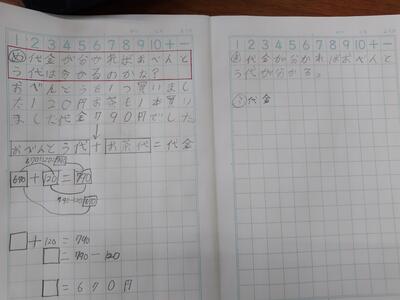 1 2 3 4 5 6 7 8 9 10 + −
め 代金が分かればおべんと
う代は分かるのかな?
おべんとうを1つ買いまし
た120円お茶も1本買い
ました代金790円でした
おべんとう代+お茶代=代金
670+120=790
□+120=790
□=790−120
□=670円
1 2 3 4 5 6 7 8 9 10 + −
ま 代金が分かればおべんと
う代が分かる。
代金